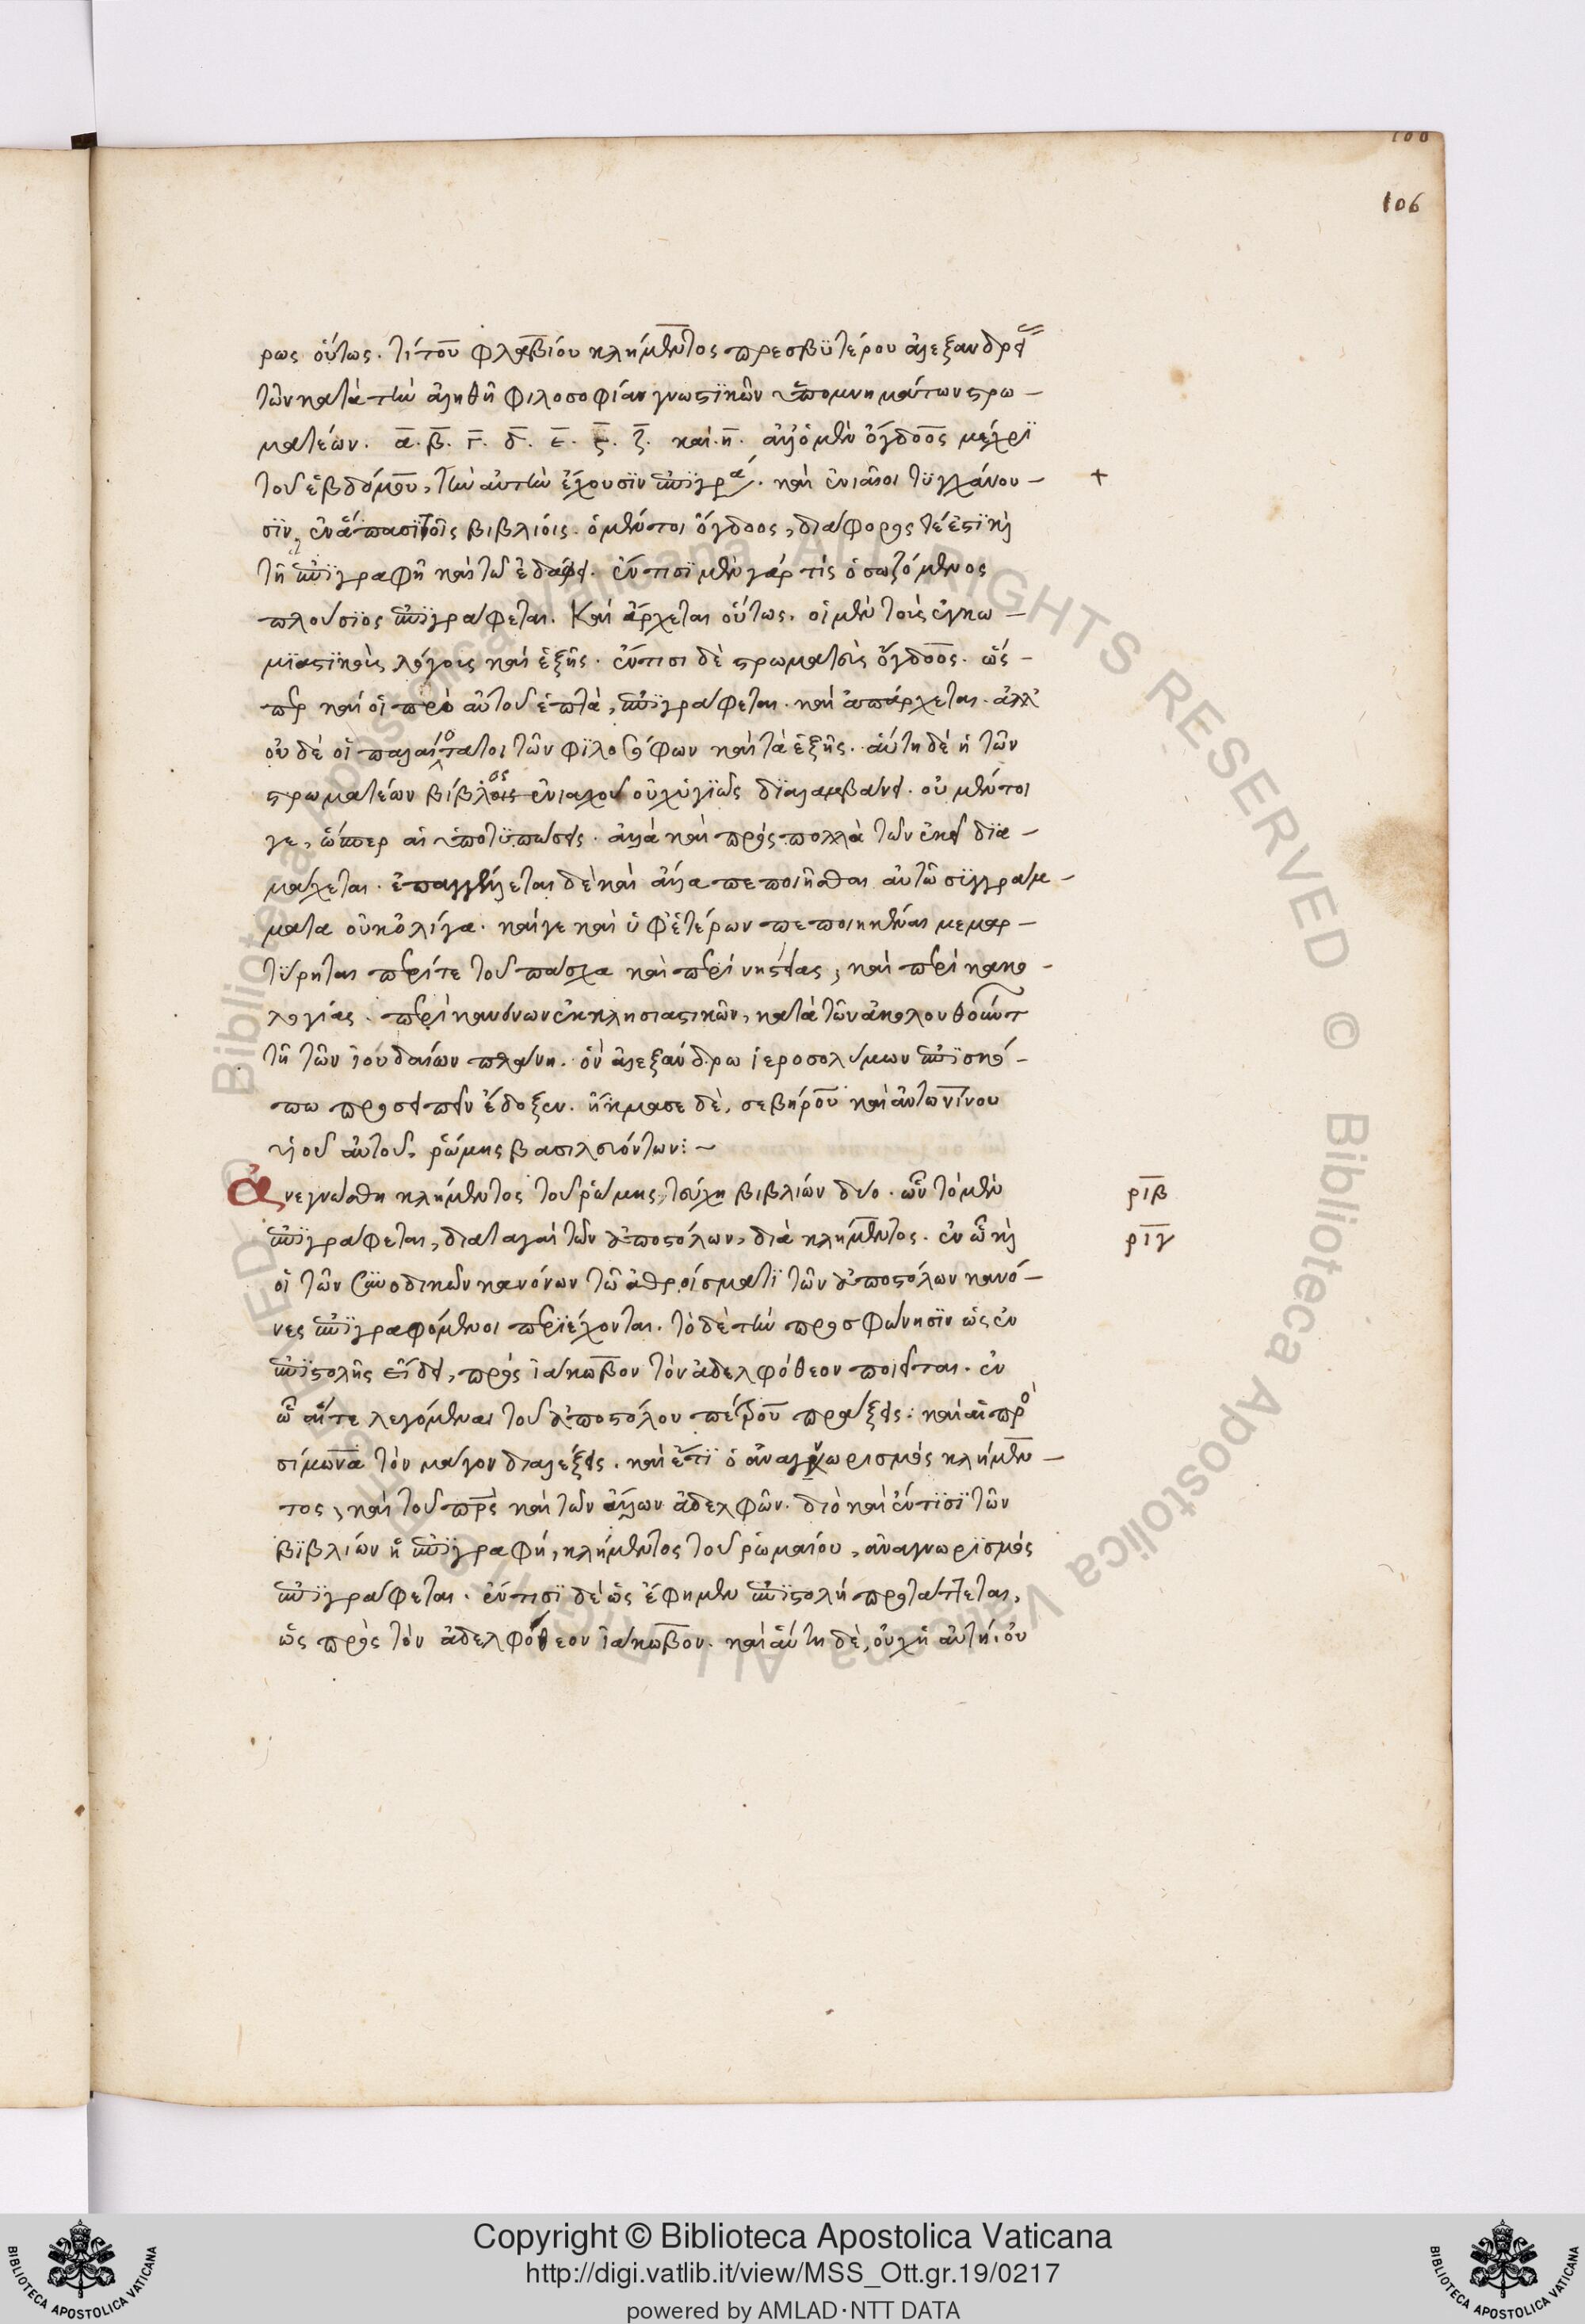 106
106
ρως οὕτως. τίτου φλαβίου κλήμεντος πρεσβϋτέρου ἀλεξανδρεί
τῶν κατὰ τὴν ἀληθῆ φιλοσοφίαν γνωστϊκῶν ὑπομνημάτων στρω-
ματέων. α. β. γ. δ. ε. ς. ζ. καὶ η. ἀλλ' ὁ μὲν ὄγδοος μέχρϊ
τοῦ ἑβδόμου, τὴν αὐτὴν ἔχουσϊν ἐπϊγρα. καὶ ἑνιαῖοι τϋγχάνου-
σϊν, ἐν ἅπασι τοῖς βιβλίοις. ὁ μέντοι ὄγδοος, διάφορός τέ ἐστϊ καὶ
τῆ ἐπϊγραφῆ καὶ τῶ ἐδάφει. ἔν τισϊ μὲν γάρ τίς ὁ σωζόμενος
πλούσϊος ἐπϊγράφεται. Καὶ ἄρχεται οὕτως. οἱ μὲν τοὺς ἐγκω-
μϊαστϊκοὺς λόγους καὶ ἑξῆς. ἔν τισι δὲ στρωματεὺς ὄγδοος. ὥς-
περ καὶ οἱ πρὸ αὐτοῦ ἑπτὰ, ἐπϊγράφεται. καὶ ἀπάρχεται. ἀλλ'
οὐ δὲ οἱ παλαιότατοι τῶν φϊλοσόφων καὶ τὰ ἑξῆς. αὕτη δὲ ἡ τῶν
στρωματέων βίβλος ἐνιαχοῦ οὐχ ὑγϊῶς δϊαλαμβάνει. οὐ μέντοι
γε, ὥσπερ αἱ ὑποτϋπώσεις. ἀλλὰ καὶ πρὸς πολλὰ τῶν ἐκεῖ δϊα-
μάχεται. ἐπαγγέλλεται δὲ καὶ ἄλλα πεποιῆσθαι αὐτῶ σϋγγράμ-
ματα οὐκ ὀλίγα. καί γε καὶ ὑφ' ἑτέρων πεποιηκέναι μεμαρ-
τύρηται περί τε τοῦ πάσχα καὶ περὶ νηστείας, καὶ περὶ κακο-
λογίας. περὶ κανόνων ἐκκλησιαστικῶν, κατὰ τῶν ἀκολουθούντ
τῆ τῶν ἰουδαίων πλάνη. ὃν ἀλεξάνδρω ἱεροσολύμων ἐπϊσκό-
πω προσειπεῖν ἔδοξεν. ἤκμασε δὲ, σεβήρου καὶ ἀντωνίνου
υἱοῦ αὐτοῦ, ῥώμης βασιλευόντων:-
ἀνεγνώσθη κλήμεντος τοῦ ῥώμης, τεύχη βιβλίων δύο. ὧν τὸ μὲν
ἐπϊγράφεται, διαταγαὶ τῶν ἀποστόλων, διὰ κλήμεντος. ἐν ὧ καὶ
οἱ τῶν συνοδικῶν κανόνων τῶ ἀθροίσματϊ τῶν ἀποστόλων κανό-
νες ἐπϊγραφόμενοι περϊέχονται. τὸ δὲ τὴν προσφώνησϊν ὡς ἐν
ἐπϊστολῆς εἴδει, πρὸς ἰάκωβον τὸν ἀδελφόθεον ποιεῖται. ἐν
ὧ αἵ τε λεγόμεναι τοῦ ἀποστόλου πέτρου πράξεις. καὶ αἱ πρὸ
σίμωνα τὸν μάγον διαλέξεις. καὶ ἔτϊ ὁ ἀναγνωρισμὸς κλήμεν-
τος, καὶ τοῦ πρς καὶ τῶν ἄλλων ἀδελφῶν. διὸ καὶ ἔν τϊσϊ τῶν
βϊβλίων ἡ ἐπϊγραφὴ, κλήμεντος τοῦ ῥωμαίου, ἀναγνωρϊσμὸς
ἐπϊγράφεται. ἔν τισϊ δὲ ὡς ἔφημεν ἐπϊστολὴ προτάττεται,
ὡς πρὸς τὸν ἀδελφόθεον ἰάκωβον. καὶ αὕτη δὲ, οὐχ ἡ αὐτὴ, οὐ
+
ριβ
ριγ
Copyright © Biblioteca Apostolica Vaticana
http://digi.vatlib.it/view/MSS_Ott.gr.19/0217
powered by AMLAD·NTT DATA